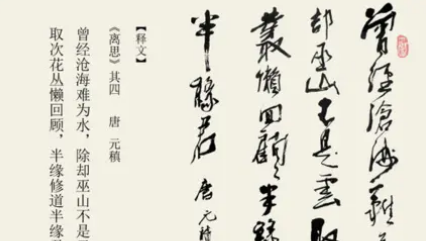 曾经沧海难
却巫山不是云取
丛懒回顾半缘
半缘君 唐 元稹
【释文】
《离思》其四 唐 元稹
曾经沧海难为水，除却巫山不是
取次花丛懒回顾，半缘修道半缘